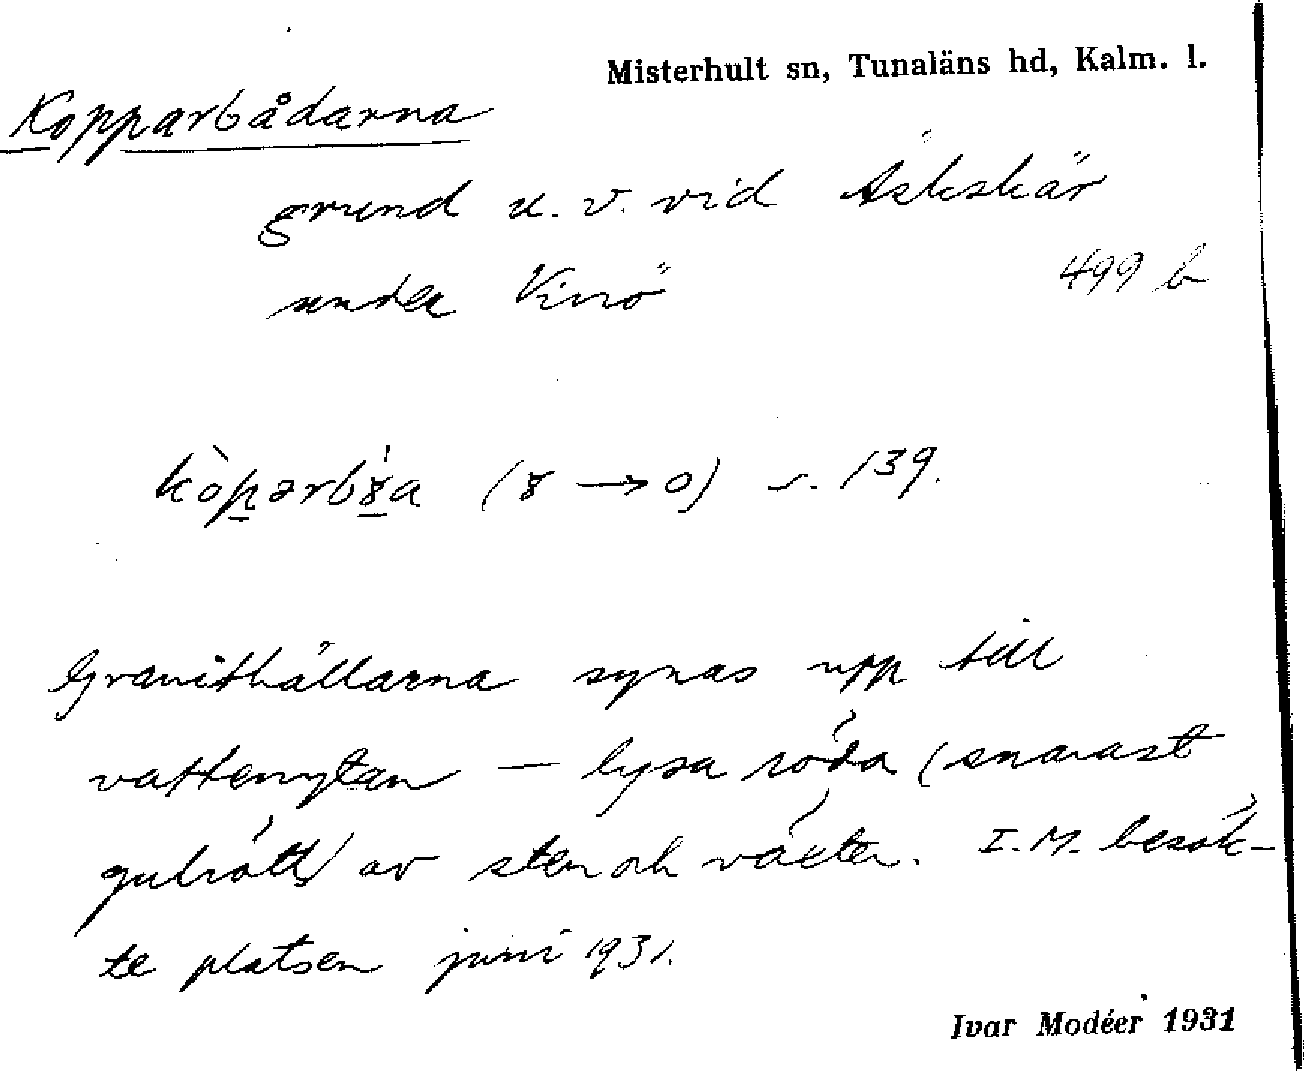 Misterhult sn, Tunaläns hd, Kalm. l.
Kopparbådarna
grund u. v. vid Äskskär
under Vinö
499 b
(8 → o) s. 139.
Granithällarna synas upp till
vattenytan — lysa röda (snarast
gulrött) av sten och växter. I. M. besök-
te platsen juni 1931.
Ivar Modéer 1931